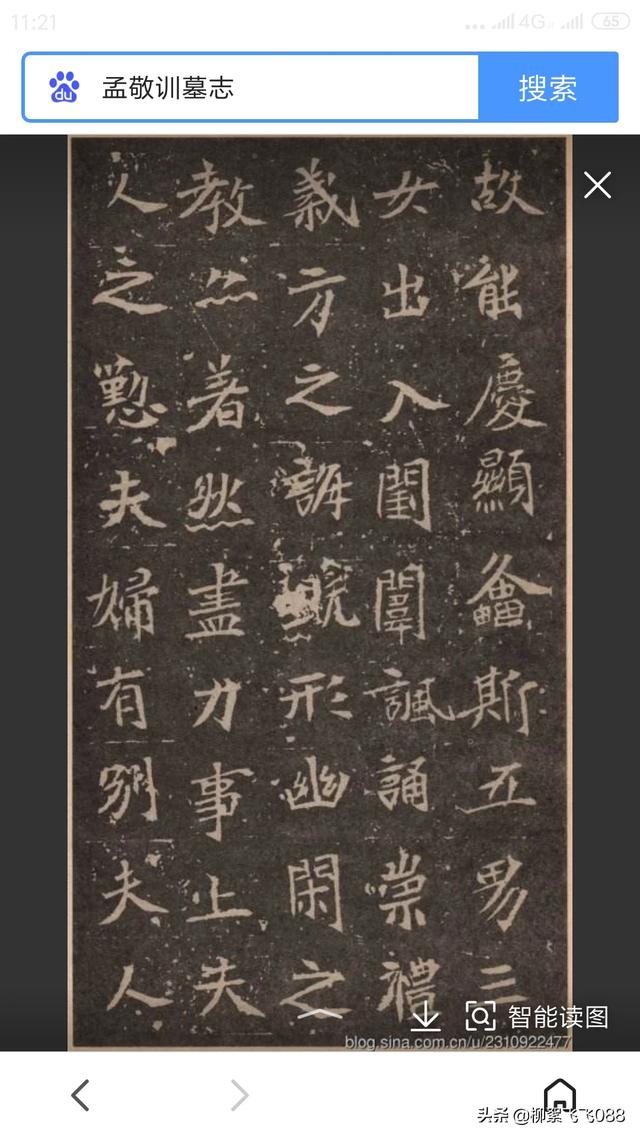 11:21
4G
65
孟敬训墓志
搜索
故能慶顯螽斯五男三
女出入閨闈諷誦崇禮
義方之誨既形幽閑之
教亦著然盡力事上夫
人之懃夫婦有別夫人
智能读图
blog.sina.com.cn/u/2310922477
头条 @柳絮飞飞088